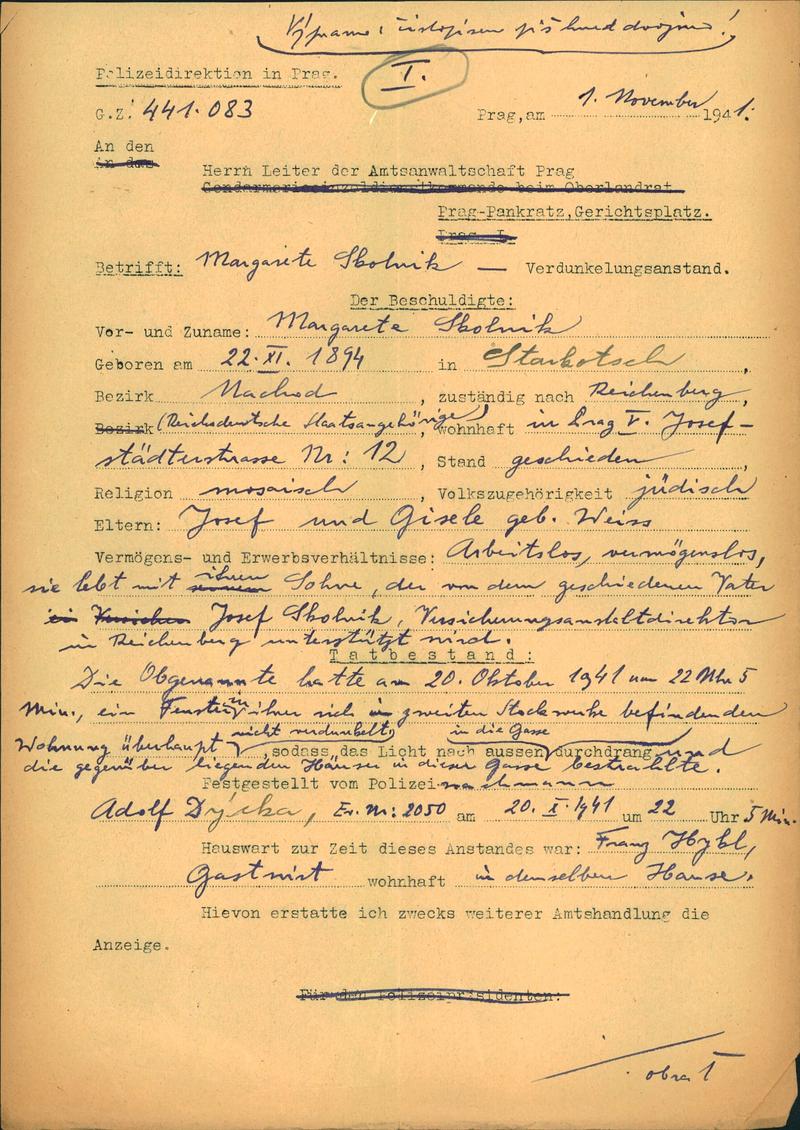 Polizeidirektion in Prag.
I.
G.Z. 441.083
Prag, am 1. November 1941.
An den
in das
Herrn Leiter der Amtsanwaltschaft Prag
Gendarmerieeinzeldienstkommando beim Oberlandrat
Prag-Pankratz, Gerichtsplatz.
Prag I.
Betrifft: Margarete Skolnik — Verdunkelungsanstand.
Der Beschuldigte:
Vor- und Zuname: Margarete Skolnik
Geboren am 22.XI. 1894 in Starkotsch,
Bezirk Nachod, zuständig nach Reichenberg,
Bezirk (Reichsdeutsche Staatsangehörige), wohnhaft in Prag V. Josef-
städterstrasse Nr: 12, Stand geschieden,
Religion mosaisch, Volkszugehörigkeit jüdisch
Eltern: Josef und Gisele geb. Weiss
Vermögens- und Erwerbsverhältnisse: Arbeitslos, vermögenslos,
sie lebt mit seinem ihrem Sohne, der von dem geschiedenen Vater
Josef Skolnik, Versicherungsanstaltdirektor
in Reichenberg unterstützt wird.
Tatbestand:
Die Obgenannte hatte am 20. Oktober 1941 um 22 Uhr 5
Min., ein Fenster in ihrer sich im zweiten Stockwerke befindenden
Wohnung überhaupt nicht verdunkelt, sodass das Licht nach aussen in die Gasse durchdrang und
die gegenüber liegenden Häuser in dieser Gasse bestrahlte.
Festgestellt vom Polizeiwachmann
Adolf Dýcka, Ev. Nr: 2050 am 20. X. 1941 um 22 Uhr 5 Min.
Hauswart zur Zeit dieses Anstandes war: Franz Hybl,
Gastwirt wohnhaft in demselben Hause.
Hievon erstatte ich zwecks weiterer Amtshandlung die
Anzeige.
Für den Polizeipräsidenten: